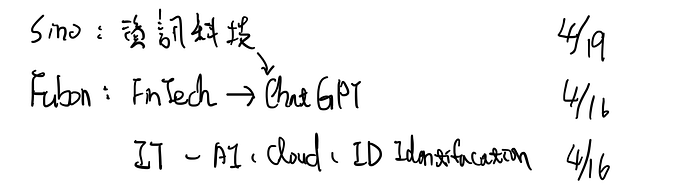 Sino : 資訊科技 4/19
Fubon : FinTech → ChatGPT 4/16
IT - AI、Cloud、ID Identifacation 4/16